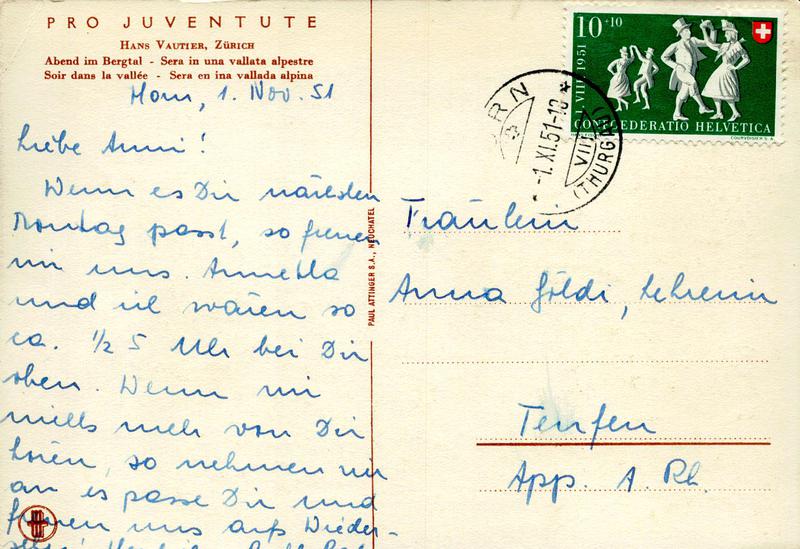 PRO JUVENTUTE
HANS VAUTIER, ZÜRICH
Abend im Bergtal - Sera in una vallata alpestre
Soir dans la vallée - Sera en ina vallada alpina
Horn, 1. Nov. 51
Liebe Anni!
Wenn es Dir nächsten
Montag passt, so freuen
wir uns. Annetta
und ich wären so
ca. 1/2 5 Uhr bei Dir
oben. Wenn wir
nichts mehr von Dir
hören, so nehmen wir
an es passe Dir und
freuen uns aufs Wieder-
sehen!
PAUL ATTINGER S.A., NEUCHATEL
10+10
1. VIII. 1951
CONFOEDERATIO HELVETICA
COURVOISIER S.A.
HORN
-1.XI.51-18
(THURGAU)
Fräulein
Anna Göldi, Lehrerin
Teufen
App. A. Rh.